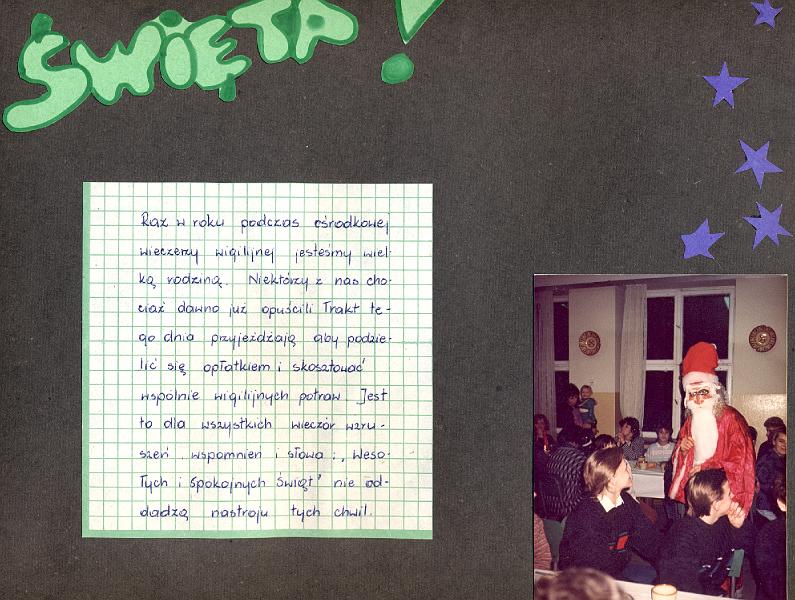 ŚWIĘTA!
Raz w roku podczas ośrodkowej
wieczerzy wigilijnej jesteśmy wiel-
ką rodziną. Niektórzy z nas cho-
ciaż dawno już opuścili Trakt te-
go dnia przyjeżdżają aby podzie-
lić się opłatkiem i skosztować
wspólnie wigilijnych potraw. Jest
to dla wszystkich wieczór wzru-
szeń, wspomnień i słowa: „Weso-
łych i spokojnych Świąt" nie od-
dadzą nastroju tych chwil.